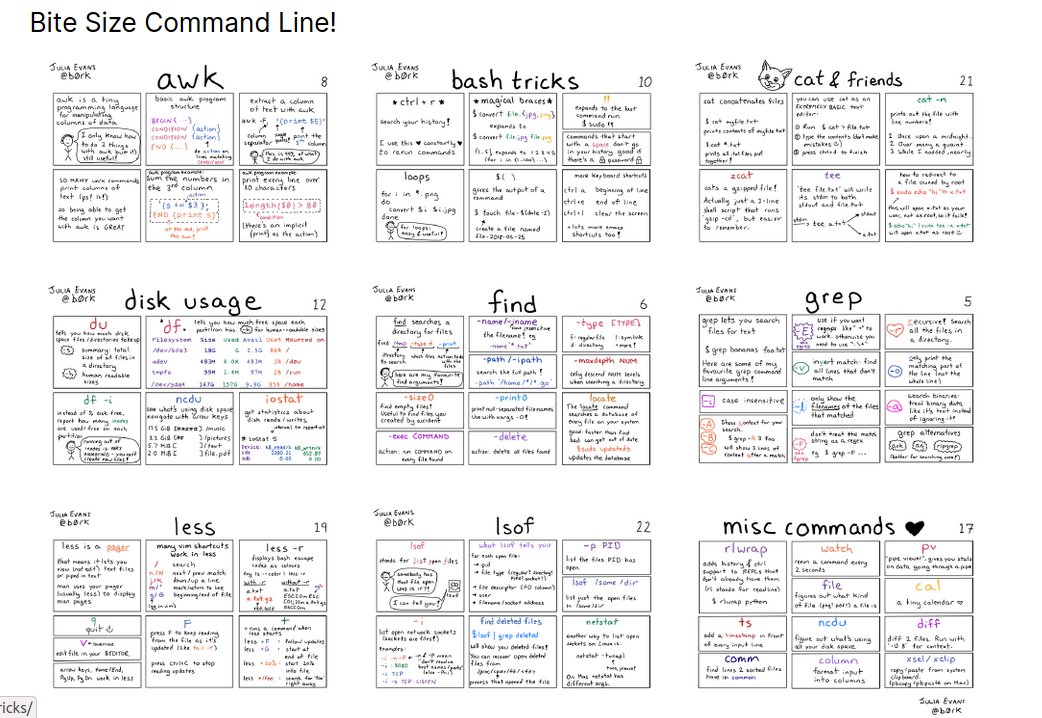 Bite Size Command Line!
JULIA EVANS
@b0rk
awk
8
awk is a tiny
programming language
for manipulating
columns of data
I only know how
to do 2 things
with awk but it's
still useful!
basic awk program
structure
BEGIN {...}
CONDITION {action}
CONDITION {action}
END {...}
do action on
lines matching
CONDITION
extract a column
of text with awk
SO MANY unix commands
print columns of
text (ps! ls!)
so being able to get
the column you want
with awk is GREAT
awk program example:
sum the numbers in
the 3rd column
action
{s += $3};
END {print s}
at the end, print
the sum!
awk program example:
print every line over
80 characters
length($0) > 80
condition
(there's an implicit
{print} as the action)
JULIA EVANS
@b0rk
bash tricks
10
* ctrl + r *
search your history!
I use this ♥ constantly ♥
to rerun commands
* magical braces *
$ convert file.{jpg,png}
expands to
$ convert file.jpg file.png
!!
expands to the last
command run
$ sudo !!
commands that start
with a space don't go
in your history. good if
there's a password
loops
for i in *.png
do
convert $i $i.jpg
done
for loops:
easy & useful!
$( )
gives the output of a
command
create a file named
more keyboard shortcuts
ctrl a beginning of line
ctrl+e end of line
ctrl+l clear the screen
+ lots more emacs
shortcuts too!
JULIA EVANS
@b0rk
cat & friends
21
cat concatenates files
$ cat myfile.txt
prints contents of myfile.txt
$ cat *.txt
prints all .txt files put
together!
you can use cat as an
EXTREMELY BASIC text
editor:
① Run $ cat > file.txt
② type the contents (don't make
mistakes ☺)
③ press ctrl+d to finish
cat -n
prints out the file with
line numbers!
1 Once upon a midnight..
2 Over many a quaint..
3 While I nodded, nearly
zcat
cats a gzipped file!
Actually just a 1-line
shell script that runs
'gzip -cd', but easier
to remember.
tee
'tee file.txt' will write
its stdin to both
stdout and file.txt
stdin
tee a.txt
stdout
a.txt
how to redirect to
a file owned by root
$ sudo echo "hi" > x.txt
this will open x.txt as your
user, not as root, so it fails!
$ echo "hi" | sudo tee -a x.txt
will open x.txt as root ☺
JULIA EVANS
@b0rk
disk usage
12
du
tells you how much disk
space files/directories take up
-s
summary: total
size of all files in
a directory
-h
human readable
sizes
df
tells you how much free space each
partition has. -h for human-readable sizes
Filesystem Size Used Avail Use% Mounted on
df -i
instead of % disk free,
report how many inodes
are used/free on each
partition
running out
of inodes is VERY
ANNOYING - you can't
create new files!
ncdu
see what's using disk space
navigate with arrow keys
iostat
get statistics about
disk reads / writes
interval to report at
# iostat 5
JULIA EVANS
@b0rk
find
6
find searches a
directory for files
here are my favourite
find arguments!
-name/-iname
case insensitive
the filename! eg
-name '*.txt'
-path / -ipath
search the full path!
-path '/home/*/*.go'
-type [TYPE]
f: regular file l: symlink
d: directory + more!
-maxdepth NUM
only descend NUM levels
when searching a directory
-size 0
find empty files!
Useful to find files you
created by accident
-exec COMMAND
action: run COMMAND on
every file found
-print0
print null-separated filenames
Use with xargs -0!
-delete
action: delete all files found
locate
The locate command
searches a database of
every file on your system
good: faster than find
bad: can get out of date
$ sudo updatedb
updates the database
JULIA EVANS
@b0rk
grep
5
grep lets you search
files for text
$ grep bananas foo.txt
Here are some of my
favourite grep command
line arguments!
-E
aka egrep
Use if you want
regexps like ".+" to
work. otherwise you
need to use ".\+"
-r
recursive! Search
all the files in
a directory.
-v
invert match: find
all lines that don't
match
-o
only print the
matching part of
the line (not the
whole line)
-i
case insensitive
-l
only show the
filenames of the files
that matched
-a
search binaries:
treat binary data
like it's text instead
of ignoring it!
-A
-B
-C
Show context for your
search.
$ grep -A 3 foo
will show 3 lines of
context after a match
-F
aka fgrep
don't treat the match
string as a regex
eg $ grep -F ...
grep alternatives
ack
ag
ripgrep
(better for searching code!)
JULIA EVANS
@b0rk
less
19
less is a pager
that means it lets you
view (not edit) text files
or piped in text
man uses your pager
(usually less) to display
man pages
many vim shortcuts
work in less
/ search
n/N next / prev match
j/k down/up a line
m/' mark/return to line
g/G beginning/end of file
(gg in vim)
less -r
displays bash escape
codes as colours
q
quit ☺
v
edit file in your $EDITOR
arrow keys, Home/End,
PgUp, PgDn work in less
F
press F to keep reading
from the file as it's
updated (like tail -f)
press ctrl+C to stop
reading updates
+
+ runs a command when
less starts
less +F : follow updates
less +G : start at
end of file
less +20% : start 20%
into file
less +/foo : search for 'foo'
right away
JULIA EVANS
@b0rk
lsof
22
lsof
stands for list open files
somebody has
that file open
WHO IS IT??
I can tell you!
lsof
what lsof tells you
for each open file:
→ pid
→ file type (regular? directory?
FIFO? socket?)
→ file descriptor (FD column)
→ user
→ filename/socket address
-p PID
list the files PID has
open
lsof /some/dir
list just the open files
in /some/dir
-i
list open network sockets
(sockets are files!)
examples:
-i -n -P
-i :8080
-i TCP
-i -s TCP:LISTEN
find deleted files
$ lsof | grep deleted
will show you deleted files!
You can recover open deleted
files from
process that opened the file
netstat
another way to list open
sockets on Linux is:
netstat -tunapl
tuna, please!
On Mac netstat has
different args.
JULIA EVANS
@b0rk
misc commands ♥
17
rlwrap
adds history & ctrl
support to REPLs that
don't already have them
(rl stands for readline)
$ rlwrap python
watch
rerun a command every
2 seconds
file
figures out what kind
of file (png? pdf?) a file is
pv
"pipe viewer", gives you stats
on data going through a pipe
cal
a tiny calendar ♡
ts
add a timestamp in front
of every input line
comm
find lines 2 sorted files
have in common
ncdu
figure out what's using
all your disk space
column
format input
into columns
diff
diff 2 files. Run with
'-U 8' for context.
xsel/xclip
copy/paste from system
clipboard.
(pbcopy/pbpaste on Mac)
JULIA EVANS
@b0rk
ricks/